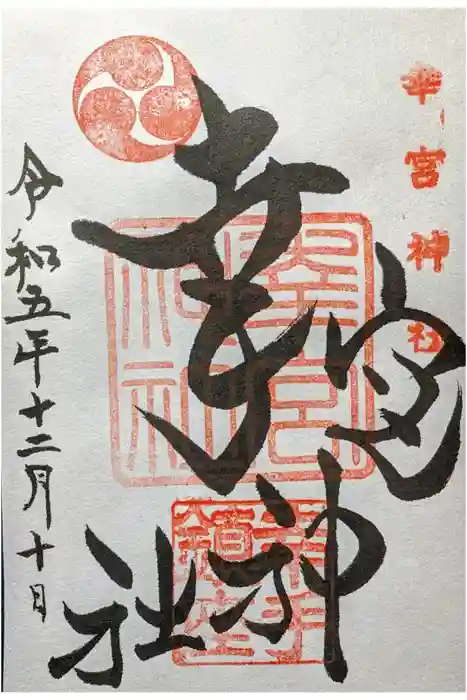 幸宮神社
幸宮
神社
令和五年十二月十日